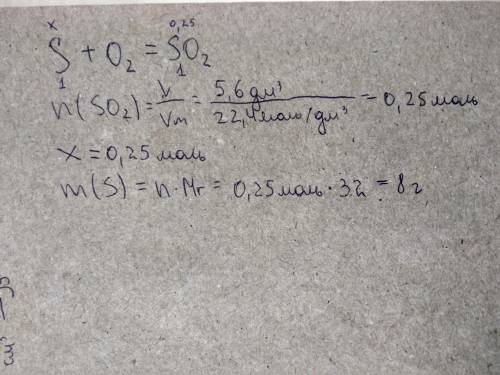 x 0,25
S + O₂ = SO₂
1 1
n(SO₂) = V/Vm = 5,6 дм³ / 22,4 моль/дм³ = 0,25 моль
x = 0,25 моль
m(S) = n·Mr = 0,25 моль · 32 = 8 г